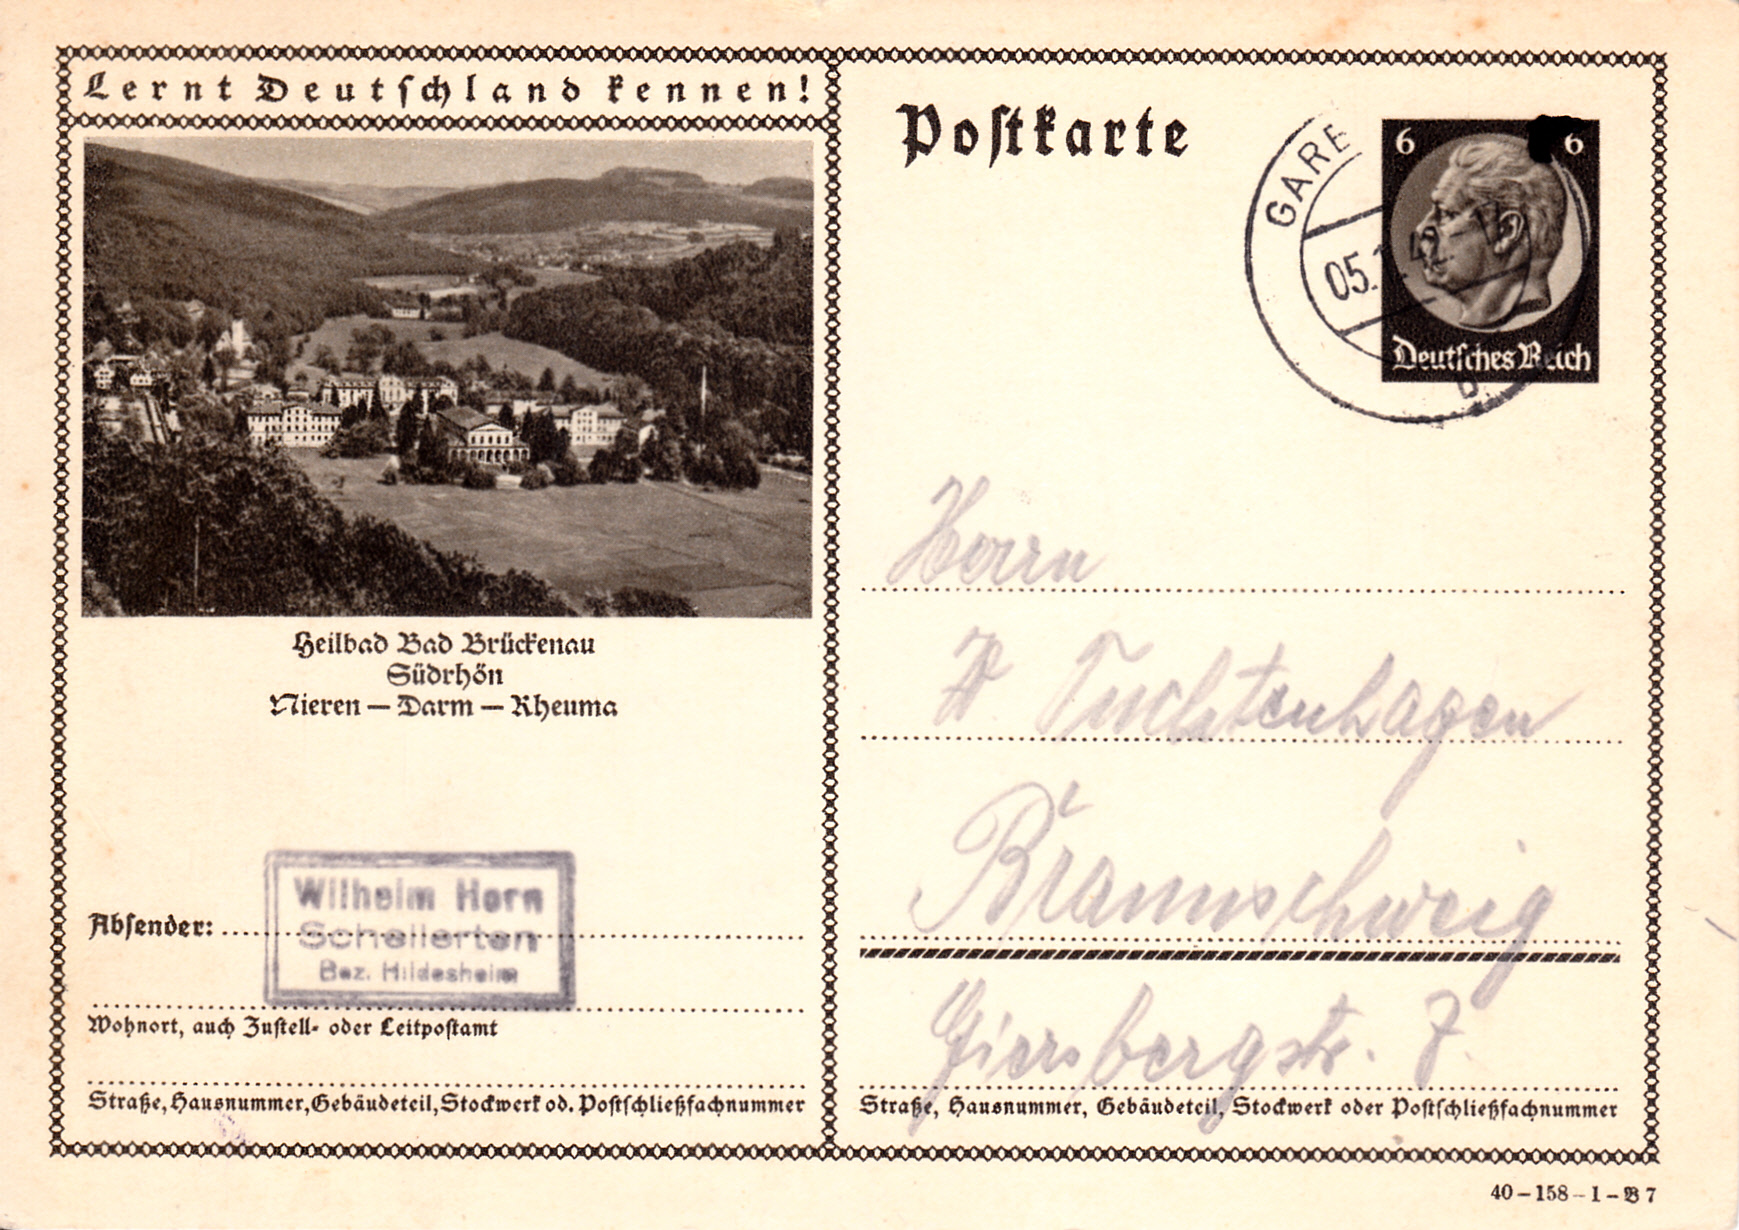 Lernt Deutschland kennen!
Postkarte
6 6
GARE
05.
Deutsches Reich
b
Heilbad Bad Brückenau
Südrhön
Nieren — Darm — Rheuma
Herrn
Tuchtenhagen
Braunschweig
Giersbergstr. 7.
Straße, Hausnummer, Gebäudeteil, Stockwerk oder Postschließfachnummer
Absender:
Wilhelm Horn
Schellerten
Bez. Hildesheim
Wohnort, auch Zustell- oder Leitpostamt
Straße, Hausnummer, Gebäudeteil, Stockwerk od. Postschließfachnummer
40 – 158 – 1 – B 7